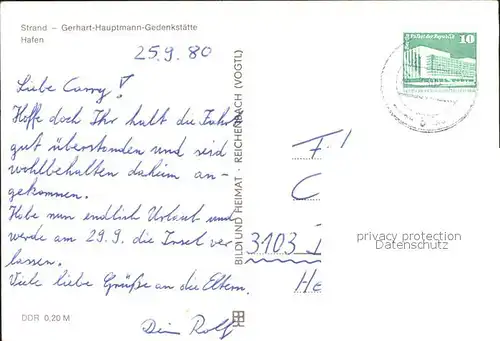 Strand – Gerhart-Hauptmann-Gedenkstätte
Hafen
25.9.80
Liebe Carry!
Hoffe doch Ihr habt die Fahrt
gut überstanden und seid
wohlbehalten daheim an-
gekommen.
Habe nun endlich Urlaub und
werde am 29.9. die Insel ver
lassen.
Viele liebe Grüße an die Eltern.
Dein Rolf
DDR 0,20 M
BILD UND HEIMAT · REICHENBACH (VOGTL)
Palast der Republik
10
F.!
C
3103
He
privacy protection
Datenschutz